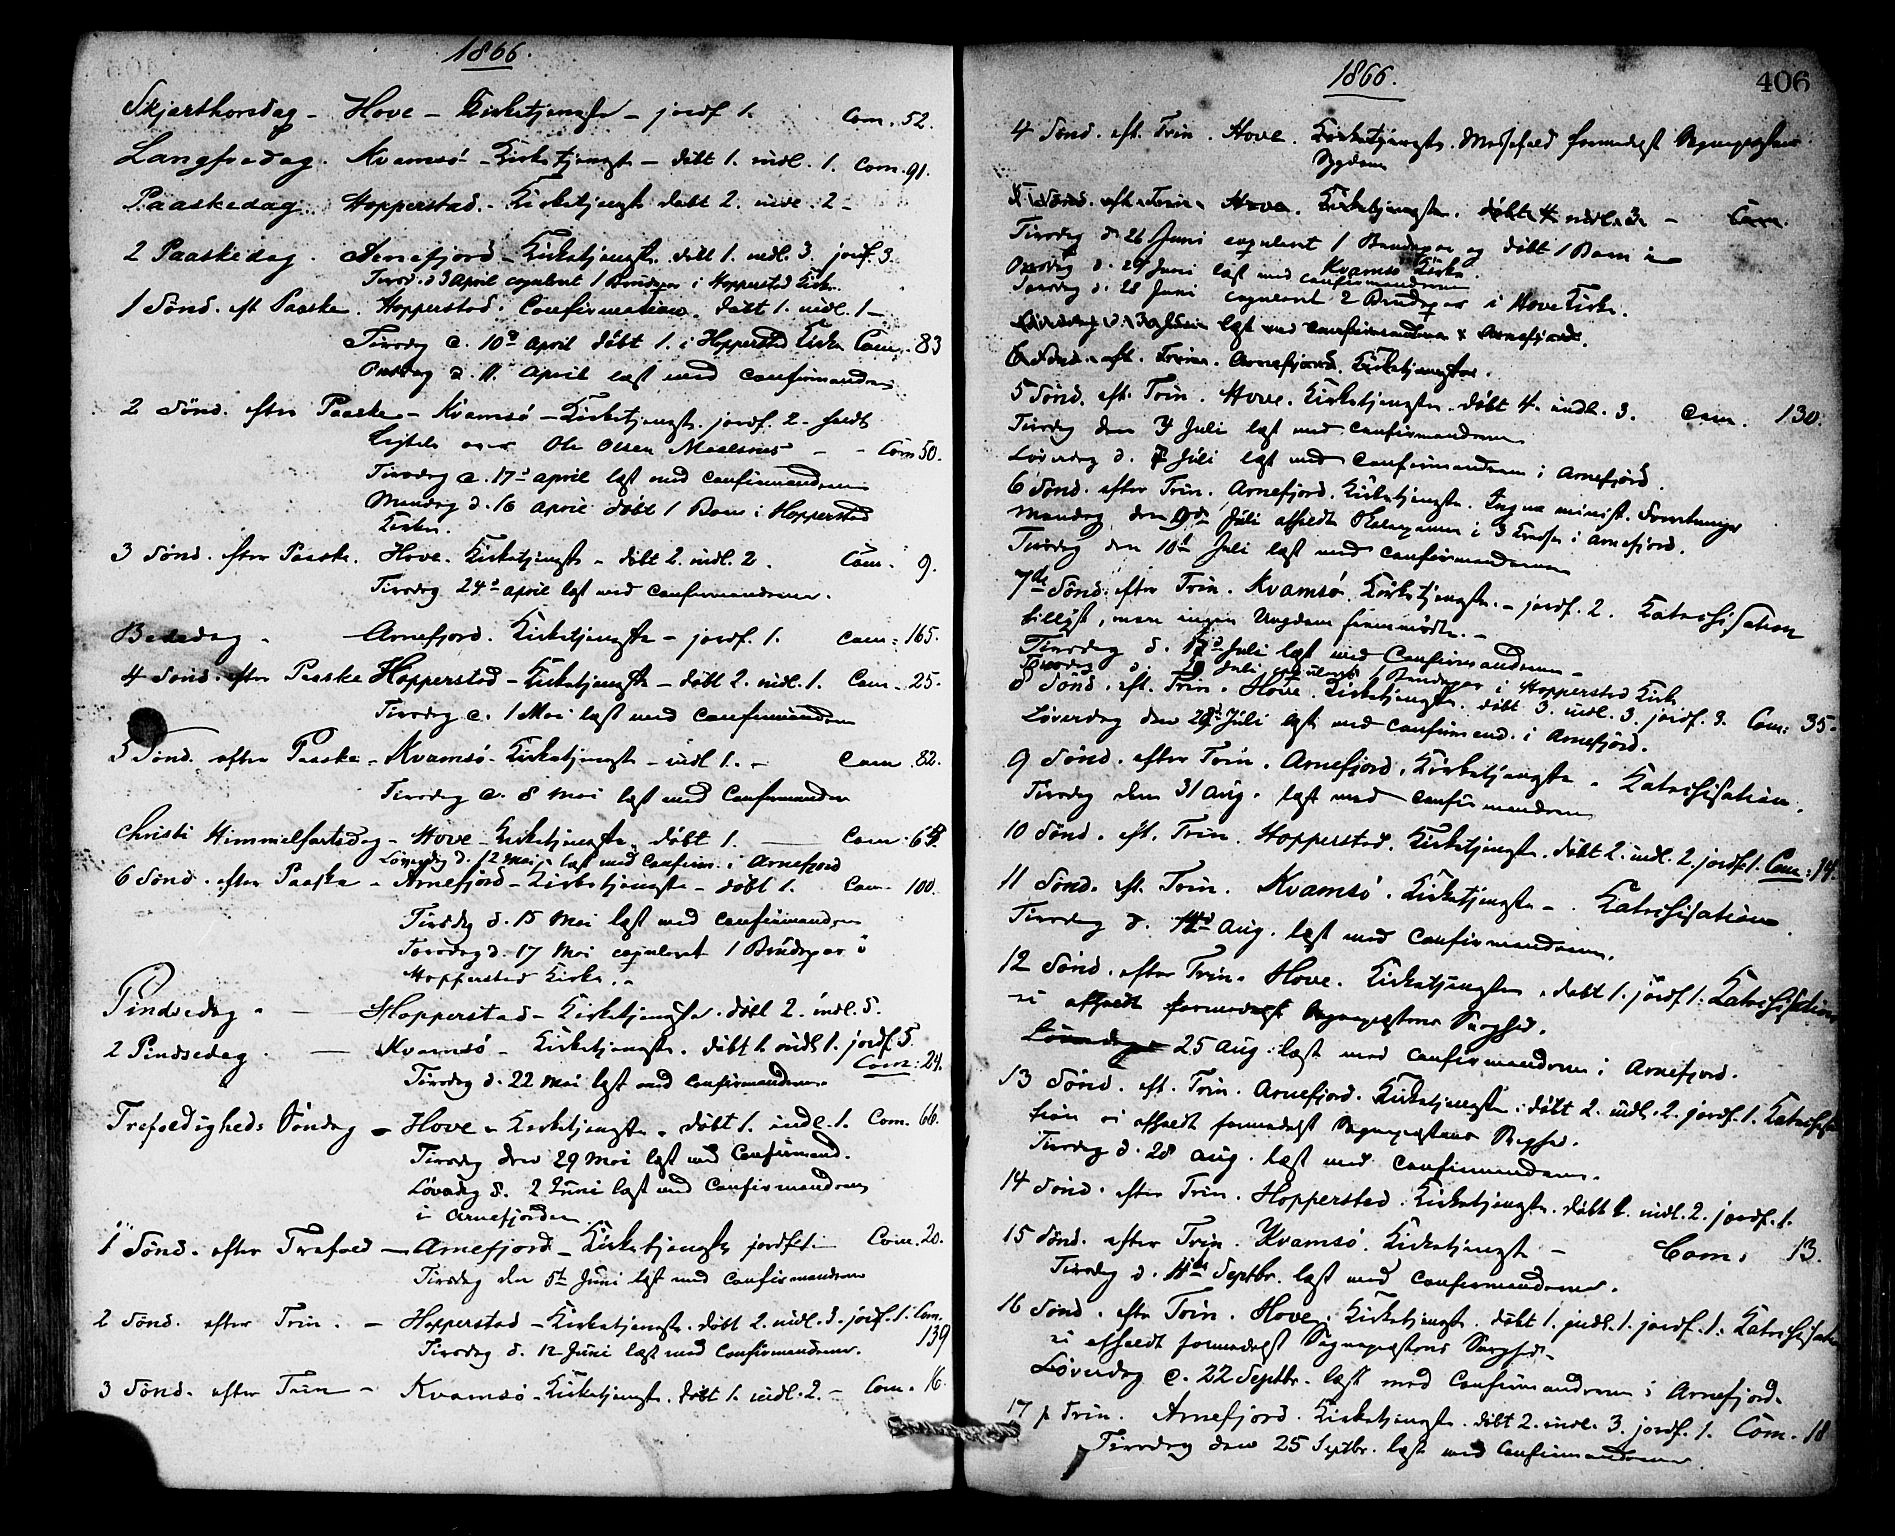 1866.
Skjærthorsdag - Hove - Kirketjeneste - jordf. 1. Com. 52.
Langfredag. Kvamsö - Kirketjeneste - döbt 1. indl. 1. Com. 91.
Paaskedag. Hopperstad - Kirketjeneste döbt 2. indl. 2 -
2 Paaskedag. Arnefjord - Kirketjeneste. döbt 1. indl. 3. jordf. 3.
Tirsd. d 3 April copuleret 1 Brudepar i Hopperstad Kirke.
1 Sönd. eft Paaske. Hopperstad. Confirmation. Döbt 1. indl. 1 -
Tirsdag d. 10d April döbt 1. i Hopperstad Kirke Com. 83
Onsdag d. 11 April læst med Confirmanderne
2 Sönd. efter Paaske - Kvamsö - Kirketjeneste. jordf. 2 - holdt
Ligtale over Ole Olsen - - Com 50.
Tirsdag d. 17d April læst med Confirmanderne
Mandag d. 16 April döbt 1 Barn i Hopperstad
Kirke.
3 Sönd. efter Paaske. Hove. Kirketjeneste - döbt 2. indl. 2. Com. 9.
Tirsdag 24d April læst med Confirmanderne.
Bededag - Arnefjord. Kirketjeneste - jordf. 1. Com: 165.
4 Sönd. efter Paaske Hopperstad - Kirketjeneste - döbt 2. indl. 1. Com. 25.
Tirsdag d. 1 Mai læst med Confirmanderne
5 Sönd. efter Paaske - Kvamsö - Kirketjeneste - indl 1. - Com. 82.
Tirsdag d. 8 Mai læst med Confirmanderne
Christi Himmelfartsdag - Hove - Kirketjeneste. döbt 1. Com.
Löverdag d. 12 Mai læst med Confirm. i Arnefjord
6 Sönd. efter Paaske - Arnefjord - Kirketjeneste - döbt 1. Com. 100.
Tirsdag d. 15 Mai læst med Confirmanderne
Torsdag d. 17 Mai copuleret 1 Brudepar i
Hopperstad Kirke. -
Pindsedag - Hopperstad - Kirketjeneste. döbt 2. indl. 5.
2 Pindsedag. - Kvamsö - Kirketjeneste. döbt 1. indl 1. jordf. 5.
Com: 24.
Tirsdag d. 22 Mai læst med Confirmanderne
Trefoldigheds Söndag - Hove - Kirketjeneste. döbt 1. indl. 1. Com. 66.
Tirsdag den 29 Mai læst med Confirmand.
Löverdag d. 2 Juni læst med Confirmanderne
i Arnefjorden
1 Sönd. efter Trefold - Arnefjord - Kirketjeneste jordf. 1. - Com. 20.
Tirsdag den 5te Juni læst med Confirmanderne
2 Sönd. efter Trin. - Hopperstad - Kirketjeneste. döbt 2. indl. 3. jordf. 1. Com.
139
Tirsdag d. 12 Juni læst med Confirmanderne.
3 Sönd. efter Trin - Kvamsö - Kirketjeneste. döbt 1. indl. 2. - Com. 16.
1866.
406
4 Sönd. eft. Trin. Hove. Kirketjeneste. Messefald formedelst Sognepræstens
Sygdom
5 Sönd. eft. Trin. Hove. Kirketjeneste. döbt 4. indl. 3. - Com.
Tirsdag d 26 Juni copuleret 1 Brudepar og döbt 1 Barn i
Kvamsö Kirke.
Onsdag d. 27 Juni læst med Confirmanderne
Torsdag d. 28 Juni copuleret 2 Brudepar i Hove Kirke.
Löverdag d. 30 Juni læst med Confirmanderne i Arnefjord.
6 Sönd. eft. Trin. Arnefjord. Kirketjeneste.
5 Sönd. eft. Trin. Hove. Kirketjeneste. döbt 4. indl. 3. Com. 130.
Tirsdag den 3 Juli læst med Confirmanderne
Löverdag d. 7 Juli læst med Confirmanderne i Arnefjord.
6 Sönd. efter Trin. Arnefjord. Kirketjeneste. Ingen minist. Forretninger
Mandag den 9de Juli afholdt i 3 Kredse i Arnefjord.
Tirsdag den 10de Juli læst med Confirmanderne
7de Sönd. efter Trin. Kvamsö. Kirketjeneste. - jordf. 2. Katechisation
tillyst, men ingen Ungdom fremmödte. -
Tirsdag d. 17d Juli læst med Confirmanderne -
Juli copuleret 1 Brudepar i Hopperstad Kirke
8 Sönd. eft. Trin. Hove. Kirketjeneste. döbt 3. indl. 3. jordf. 3. Com: 35.
Löverdag den 28d Juli læst med Confirmand. i Arnefjord.
9 Sönd. efter Trin. Arnefjord. Kirketjeneste. Katechisation.
Tirsdag den 31 Aug. læst med Confirmanderne
10 Sönd. eft. Trin. Hopperstad. Kirketjeneste. döbt 2. indl. 2. jordf. 1. Com: 14.
11 Sönd. eft. Trin. Kvamsö. Kirketjeneste - . Katechisation.
Tirsdag d. 14d Aug. læst med Confirmanderne.
12 Sönd. efter Trin. Hove. Kirketjeneste. döbt 1. jordf 1. Katechisation
ei afholdt formedelst Sognepræstens Svaghed.
Löverdag 25 Aug. læst med Confirmanderne i Arnefjord.
13 Sönd. eft. Trin. Arnefjord. Kirketjeneste. döbt 2. indl. 2. jordf. 1. Katechisa
tion ei afholdt formedelst Sognepræstens Svaghed.
Tirsdag d. 28 Aug. læst med Confirmanderne.
14 Sönd. efter Trin. Hopperstad. Kirketjeneste. döbt 1. indl. 2. jordf. 1.
15 Sönd. efter Trin. Kvamsö. Kirketjeneste - Com: 13.
Tirsdag d. 11te Septbr. læst med Confirmanderne.
16 Sönd. efter Trin. Hove. Kirketjeneste. döbt 1. indl. 1. jordf. 1. Katechisation
ei afholdt formedelst Sognepræstens Svaghed.
Löverdag d. 22 Septbr. læst med Confirmanderne i Arnefjord.
17 p Trin. Arnefjord. Kirketjeneste. döbt 2. indl. 3. jordf. 1. Com. 18
Tirsdag den 25 Septbr. læst med Confirmanderne